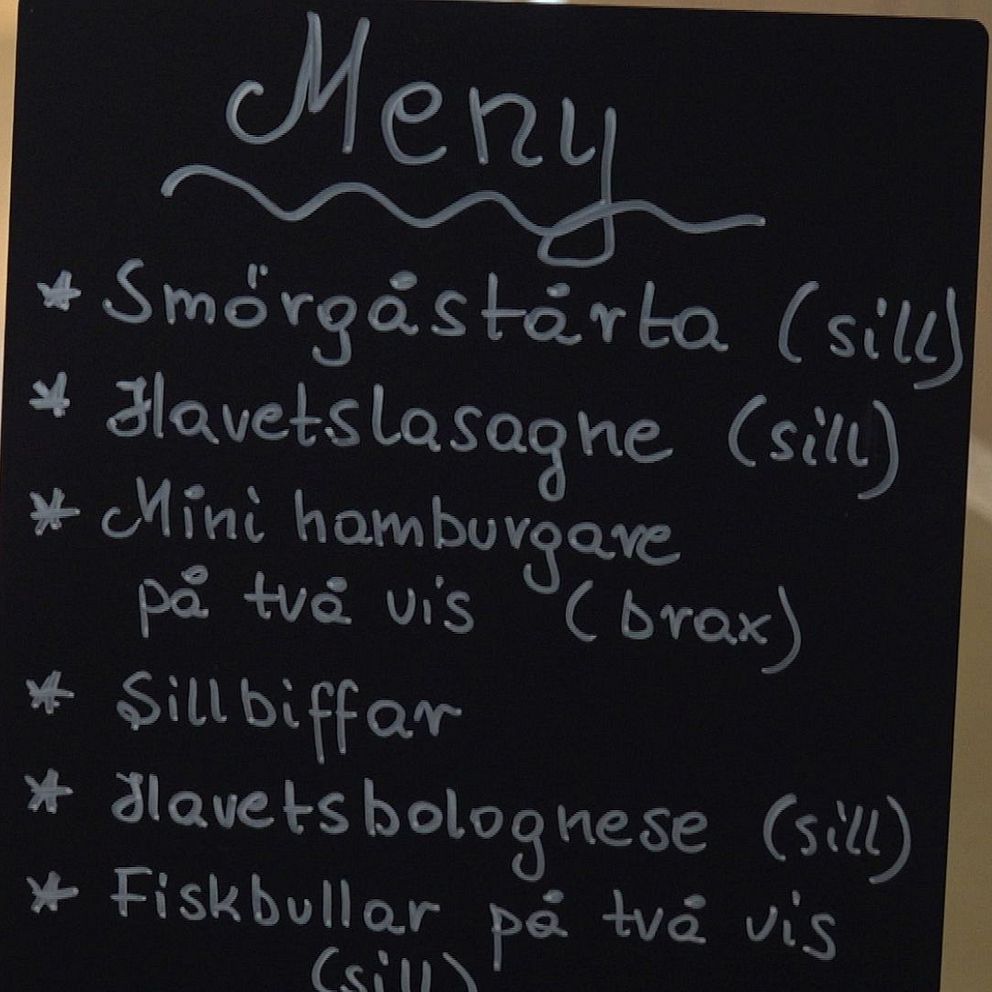 Meny
* Smörgåstårta (sill)
* Havetslasagne (sill)
* Mini hamburgare
på två vis (brax)
* Sillbiffar
* Havetsbolognese (sill)
* Fiskbullar på två vis
(sill)